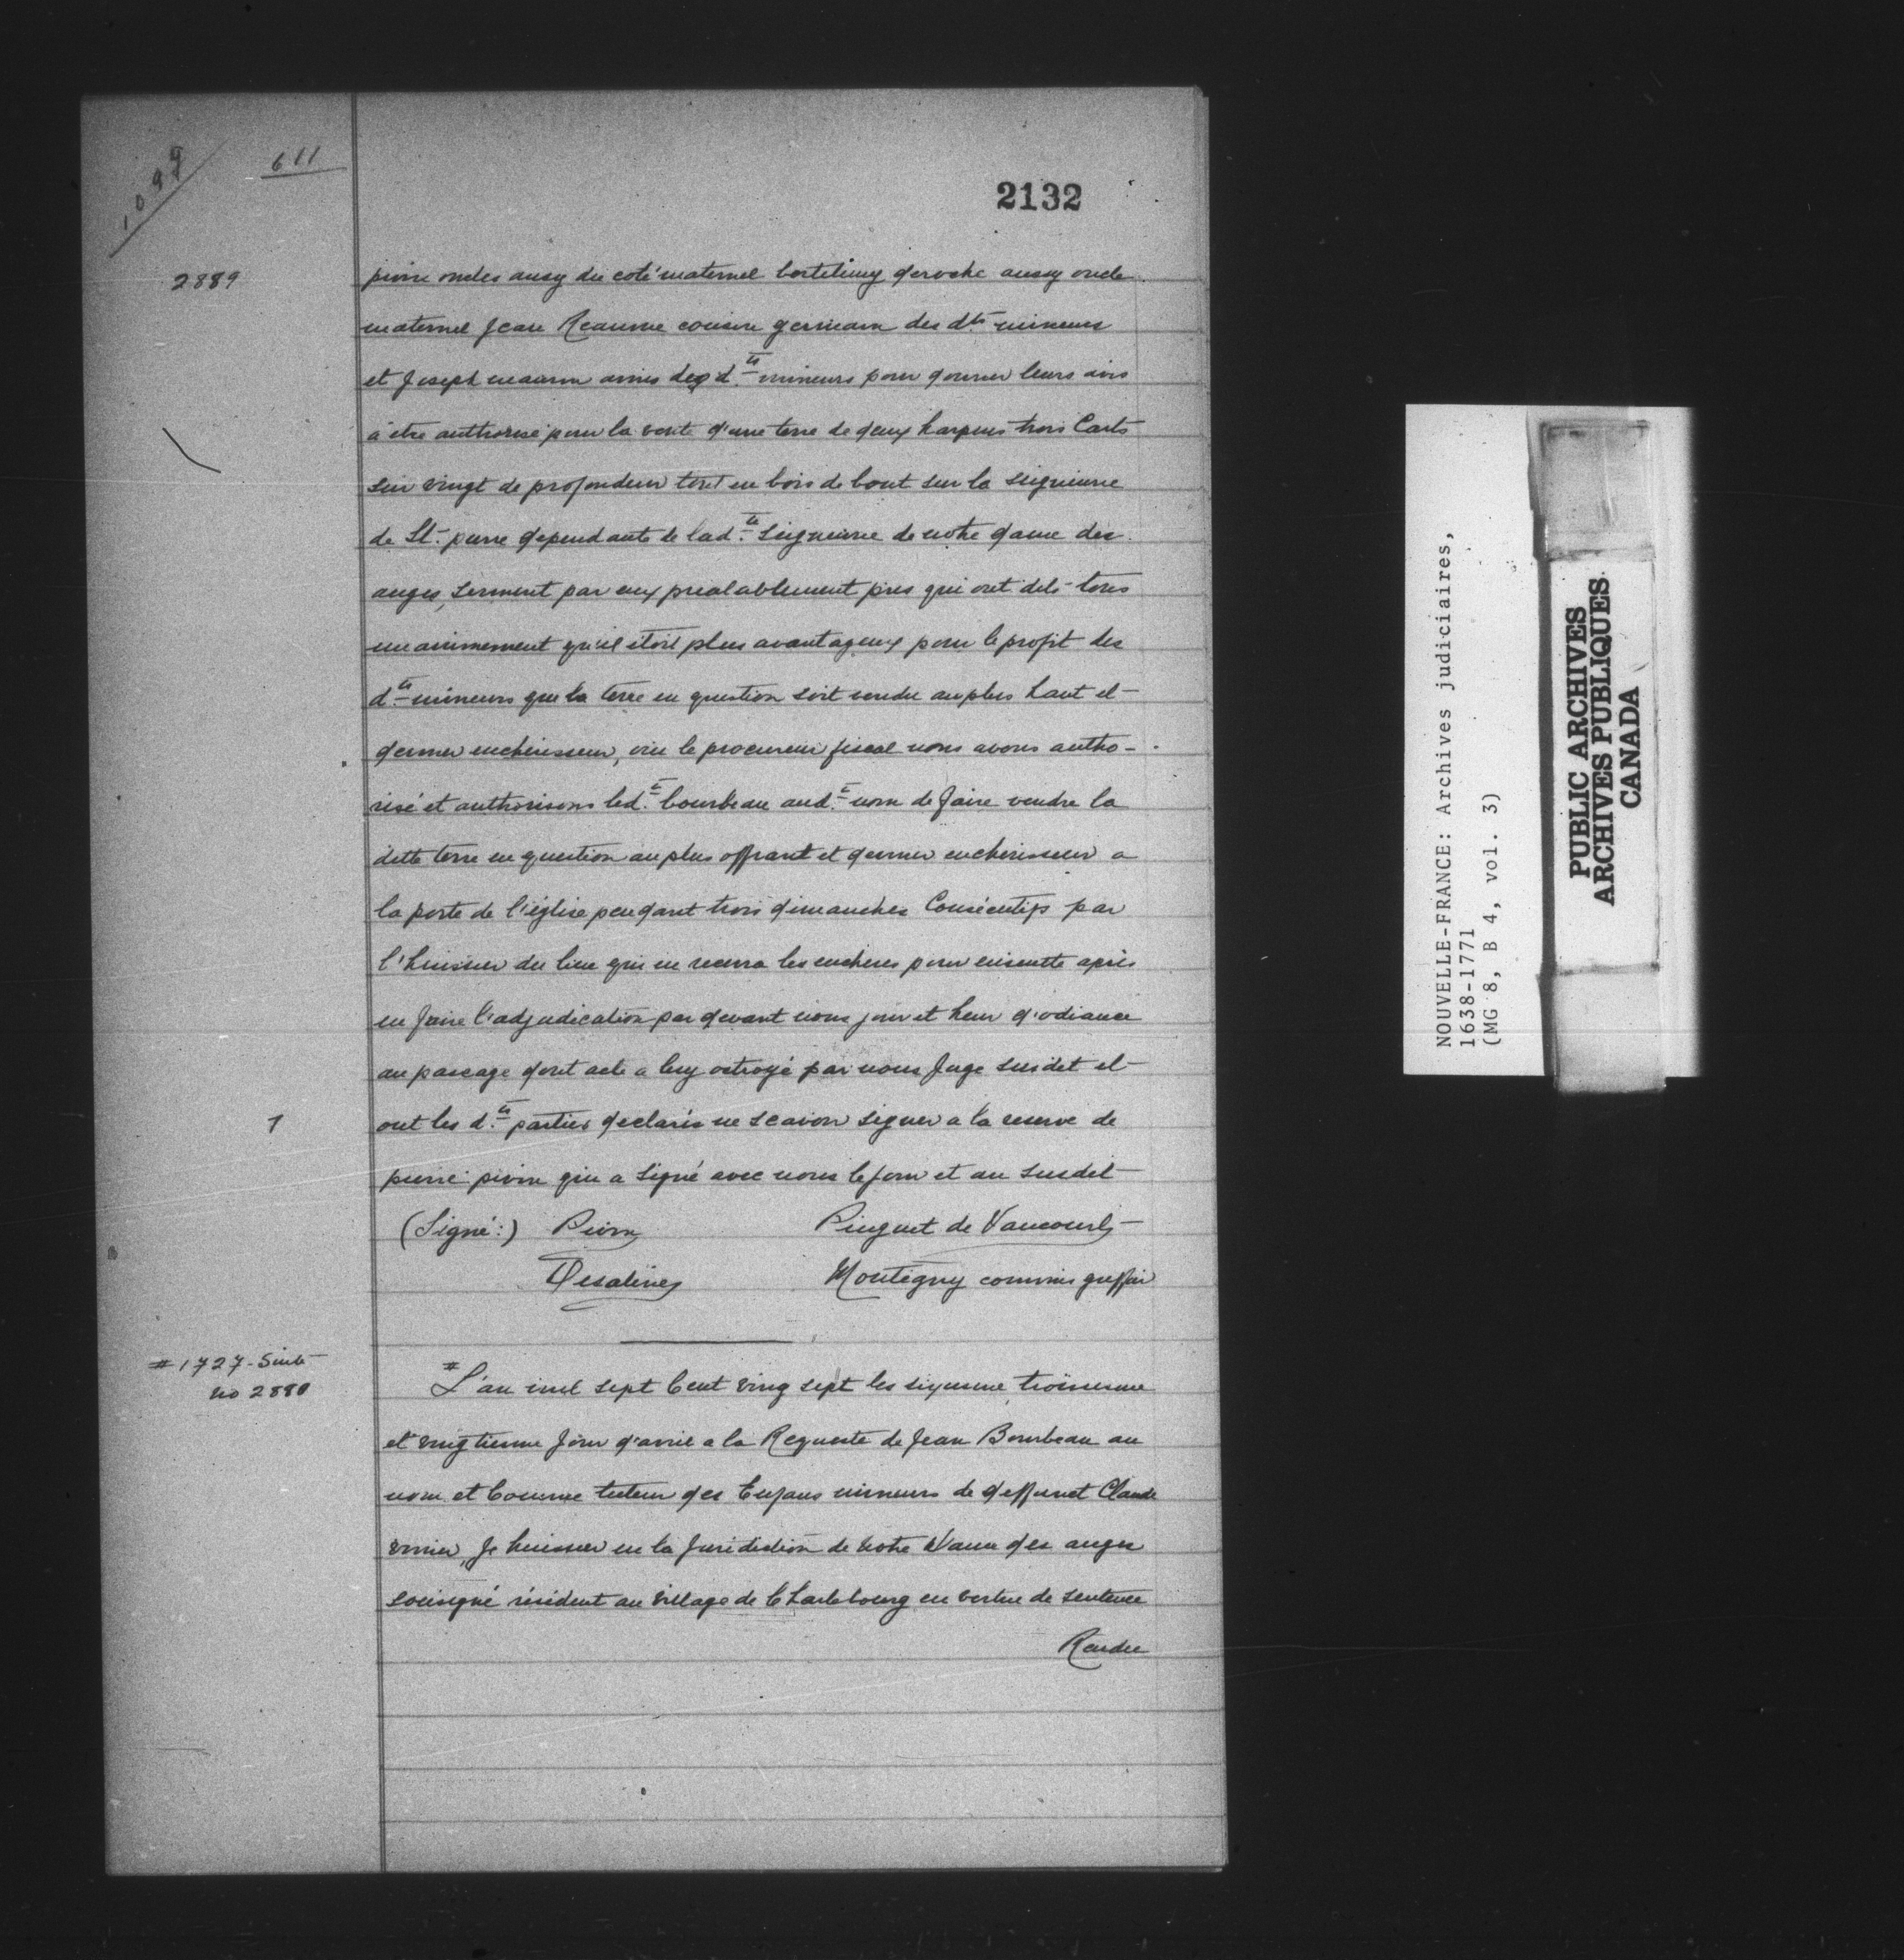 1099
611
2132
2889
pivin oncles ausy du coté maternel bertelimy deroche aussy oncle
maternel Jean Reaume cousin germain des dts mineurs
et Joseph amis des dts mineurs pour donner leurs avis
à etre authorisé pour la vente d'une terre de deux harpens trois Carts
sur vingt de profondeur tout en bois de bout sur la seigneurie
de St. pierre dependante de lad.te seigneurie de notre dame des
anges, serment par eux prealablement pris qui ont dits tous
unanimement qu'il étoit plus avantageux pour le profit des
d.ts mineurs que la terre en question soit vendu au plus haut et
dernier enchérisseur, oui le procureur fiscal nous avons autho-
risé et authorisons led.t bourbeau aud.t nom de faire vendre la
ditte terre en question au plus offrant et dernier encherisseur a
la porte de l'église pendant trois dimanches Consécutifs par
l'huissier du lieu qui en recevra les encheres pour ensuitte après
en faire l'adjudication par devant nous jour et heur d'odiance
au passage dont acte a luy octroyé par nous Juge susdit et
1
ont les d.ts parties declarés ne scavoir signer a la reserve de
pierre pivin qui a signé avec nous le jour et an susdit
(Signé:) Pivin Pinguet de Vaucourt
Desalines Montigny commis greffier
#1727-Suite
no 2880
# L'an mil sept Cent ving sept les sixiesme troisiesme
et vingtiesme Jour d'avril a la Requeste de Jean Bourbeau au
nom et Comme tuteur des Enfans mineurs de deffunct Claude
Je huissier en la Juridiction de notre Dame des anges
sousigné résident au village de Charlebourg en vertue de sentence
Rendu
NOUVELLE-FRANCE: Archives judiciaires,
1638-1771
(MG 8, B 4, vol. 3)
PUBLIC ARCHIVES
ARCHIVES PUBLIQUES
CANADA